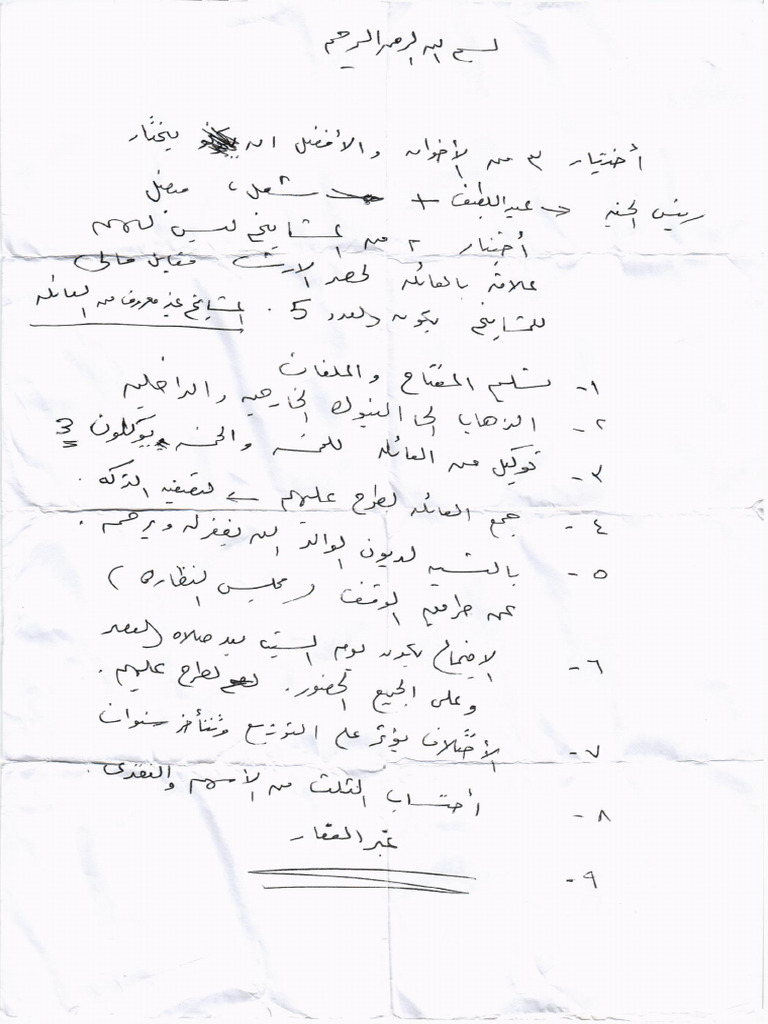 بسم الله الرحمن الرحيم
أختيار ٣ من الأخوان والأفضل ان يختار
رئيس الجنه → عبداللطيف + مشعل، فيصل
أختيار ٢ من المشايخ ليس لهم
علاقة بالعائله لحصر الارث مقابل مالي
للمشايخ يكون العدد 5. المشايخ غير معروف من العائله
١- تسليم المفتاح والملفات
٢- الذهاب الى البنوك الخارجيه والداخليه
٣- توكيل من العائله للجنه والجنه يوكلون 3
٤- جمع العائله لطرح عليهم ← لتصفية التركه.
٥- بالنسبه لديون الوالد الله يغفرله ويرحمه.
عن طريق الوقف (مجلس النظاره)
٦- الاجتماع يكون يوم السبت بعد صلاه العصر
وعلى الجميع الحضور. لطرح عليهم.
٧- الأختلاف يؤثر على التوزيع وتتأخر سنوات
٨- أحتساب الثلث من الأسهم والنقدي.
غير العقار
٩-